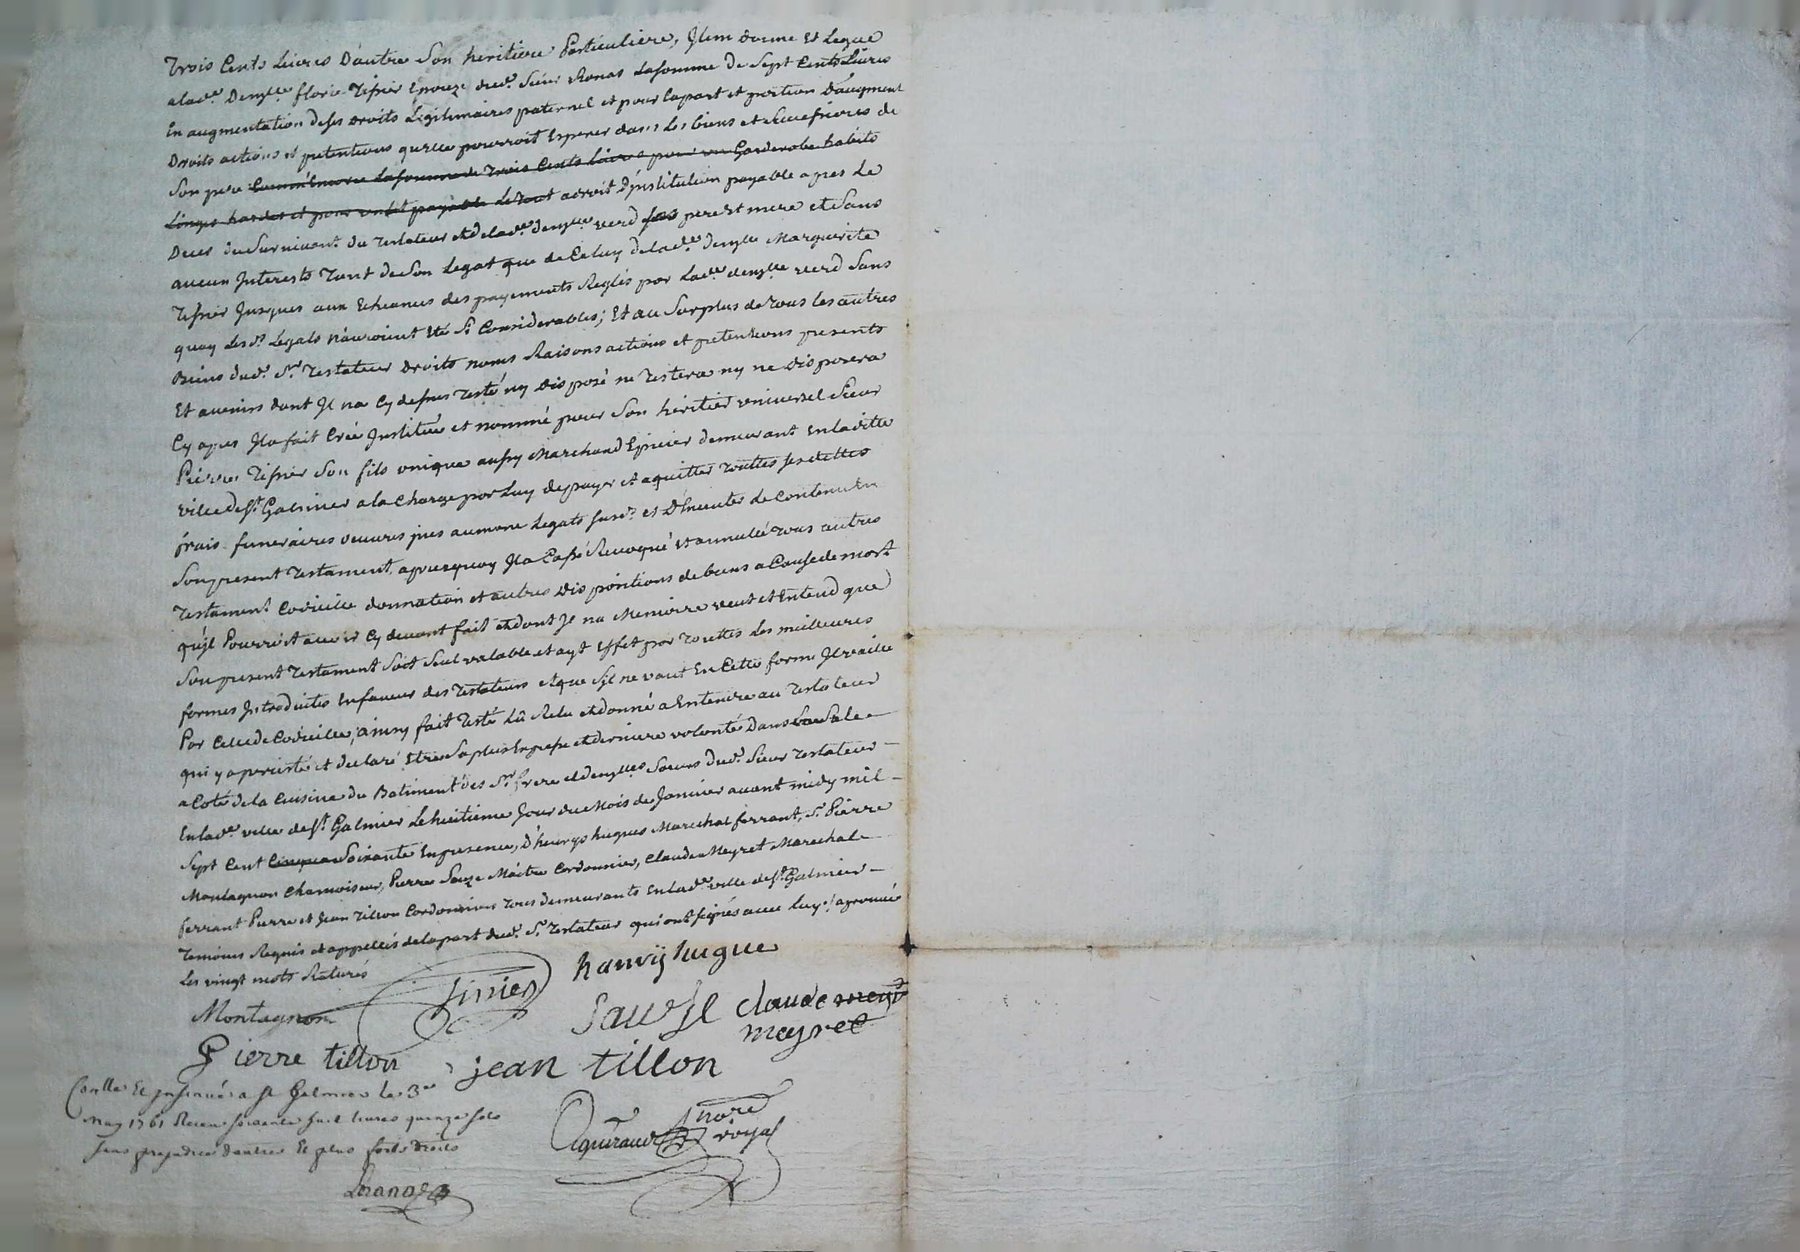 Trois Cents Livres D'autre Son heritiere Particuliere, Item donne Et Legue
a lad.e Demlle florie Tissier Epouze dud. Sieur Ronas La somme De Sept Cents Livres
En augmentation de ses Droits Legitimaires paternel et pour la part et portion D'augment
Droits actions et pretentions qu'elle pourroit Esperer dans Les biens et de
Son pere Comm'Encore La somme de Trois Cents Livres pour un Garderobe habits
Linges hardes et pour un lit payable Le Tout a droit D'institution payable apres Le
Deces du Survivant du Testateur et de lad.e demlle verd ses pere Et mere et Sans
aucun Interests Tant de Son Legat que de Celuy de lad.e demlle Marguerite
Tissier Jusques aux Echeances des payements Reglés par Lad.e demlle verd Sans
quoy Lesd. Légats n'auroient Eté Sy Considerables; Et au Surplus de Tous les autres
Biens dud. Sr Testateur Droits noms Raisons actions et pretentions presents
Et avenirs dont Il n'a Cy dessus Testé ny Disposé ne Testera ny ne Disposera
Cy apres Il a fait Créé Institué et nommé pour Son héritier universel Sieur
Pierre Tissier Son fils unique aussy Marchand Epicier demeurant En laditte
ville de St Galmier a la Charge par Luy de payer et aquitter Touttes Ses dettes
frais funeraires oeuvres pies aumone Legats susd. et D'Executer Le Contenu En
Son present Testament, apres quoy Il a Cassé Revoqué Et annullé Tous autres
Testament Codicille donnation et autres Dispositions de biens a Cause de mort
qu'il Pourroit avoir Cy devant fait et dont Il n'a Memoire veut et Entend que
Son present Testament Soit Seul valable et ayt Effet par Touttes Les meilleures
formes Introduites En faveur des Testateurs et que S'il ne vaut En Cette forme Il vaille
Par Celle de Codicille, ainsy fait Testé Lû Relu et donné a Entendre au Testateur
qui y a persisté et declaré Etre Sa plus Expresse et derniere volonté Dans La Sale
a Coté de la Cuisine du Batiment des Srs frere et demlles Soeurs dud. Sieur Testateur
En lad.e ville de St Galmier Le huitieme Jour du Mois de Janvier avant midy mil
Sept Cent Cinquan Soixante En presence, D'henrys hugues Marechal ferrant, Sr Pierre
Montagnon Chamoiseur, Pierre Sauze Maitre Cordonnier, Claude Meyret Marechal
ferrant Pierre et Jean Tillon Cordonniers Tous demeurants En lad.e ville de St Galmier
Temoins Requis et appellés de la part dud. Sr Testateur qui ont signés avec luy. / approuvé
Les vingt mots Raturés
hanrÿ hugue
Montagnon
Tissier
Sauze
claude meyr
meyret
Pierre tillon
jean tillon
Conlle Et Insinué a St Galmier le 3me
May 1761 Recu soixante huit livres quinze sols
sans prejudice d'autres Et plus forts droits
nore
royal